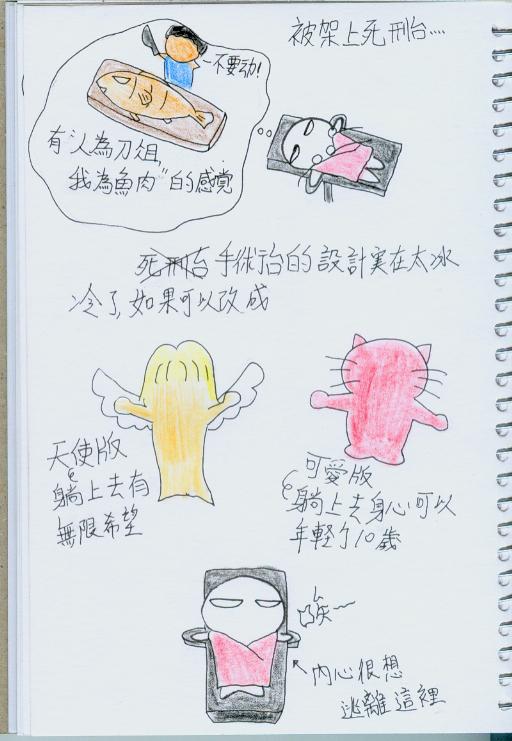 被架上死刑台....
不要动!
有"人為刀俎,
我為魚肉"的感覺
死刑台 手術台的設計実在太冰
冷了,如果可以改成
天使版
躺上去有
無限希望
可愛版
躺上去身心可以
年輕了10歲
唉~~
內心很想
逃離這裡